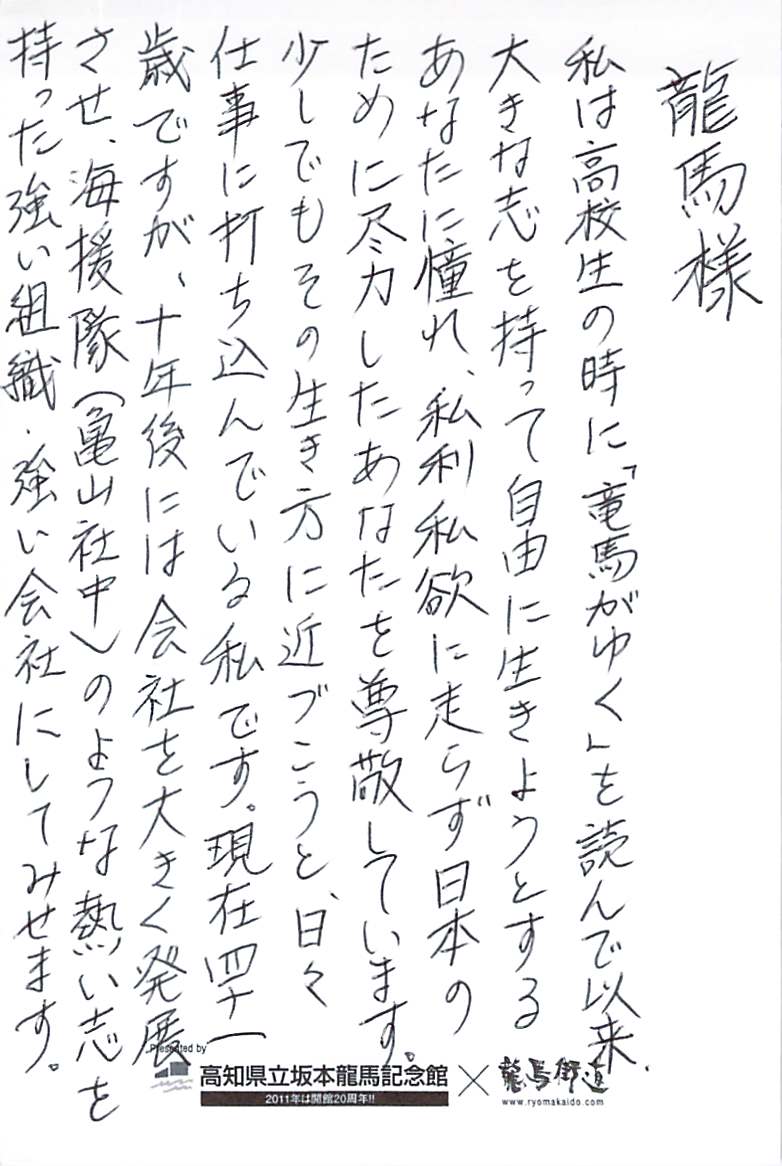 龍馬様
私は高校生の時に「竜馬がゆく」を読んで以来、
大きな志を持って自由に生きようとする
あなたに憧れ、私利私欲に走らず日本の
ために尽力したあなたを尊敬しています。
少しでもその生き方に近づこうと、日々
仕事に打ち込んでいる私です。現在四十一
歳ですが、十年後には会社を大きく発展
させ、海援隊(亀山社中)のような熱い志を
持った強い組織・強い会社にしてみせます。
Presented by
高知県立坂本龍馬記念館
2011年は開館20周年!!
×
龍馬街道
www.ryomakaido.com